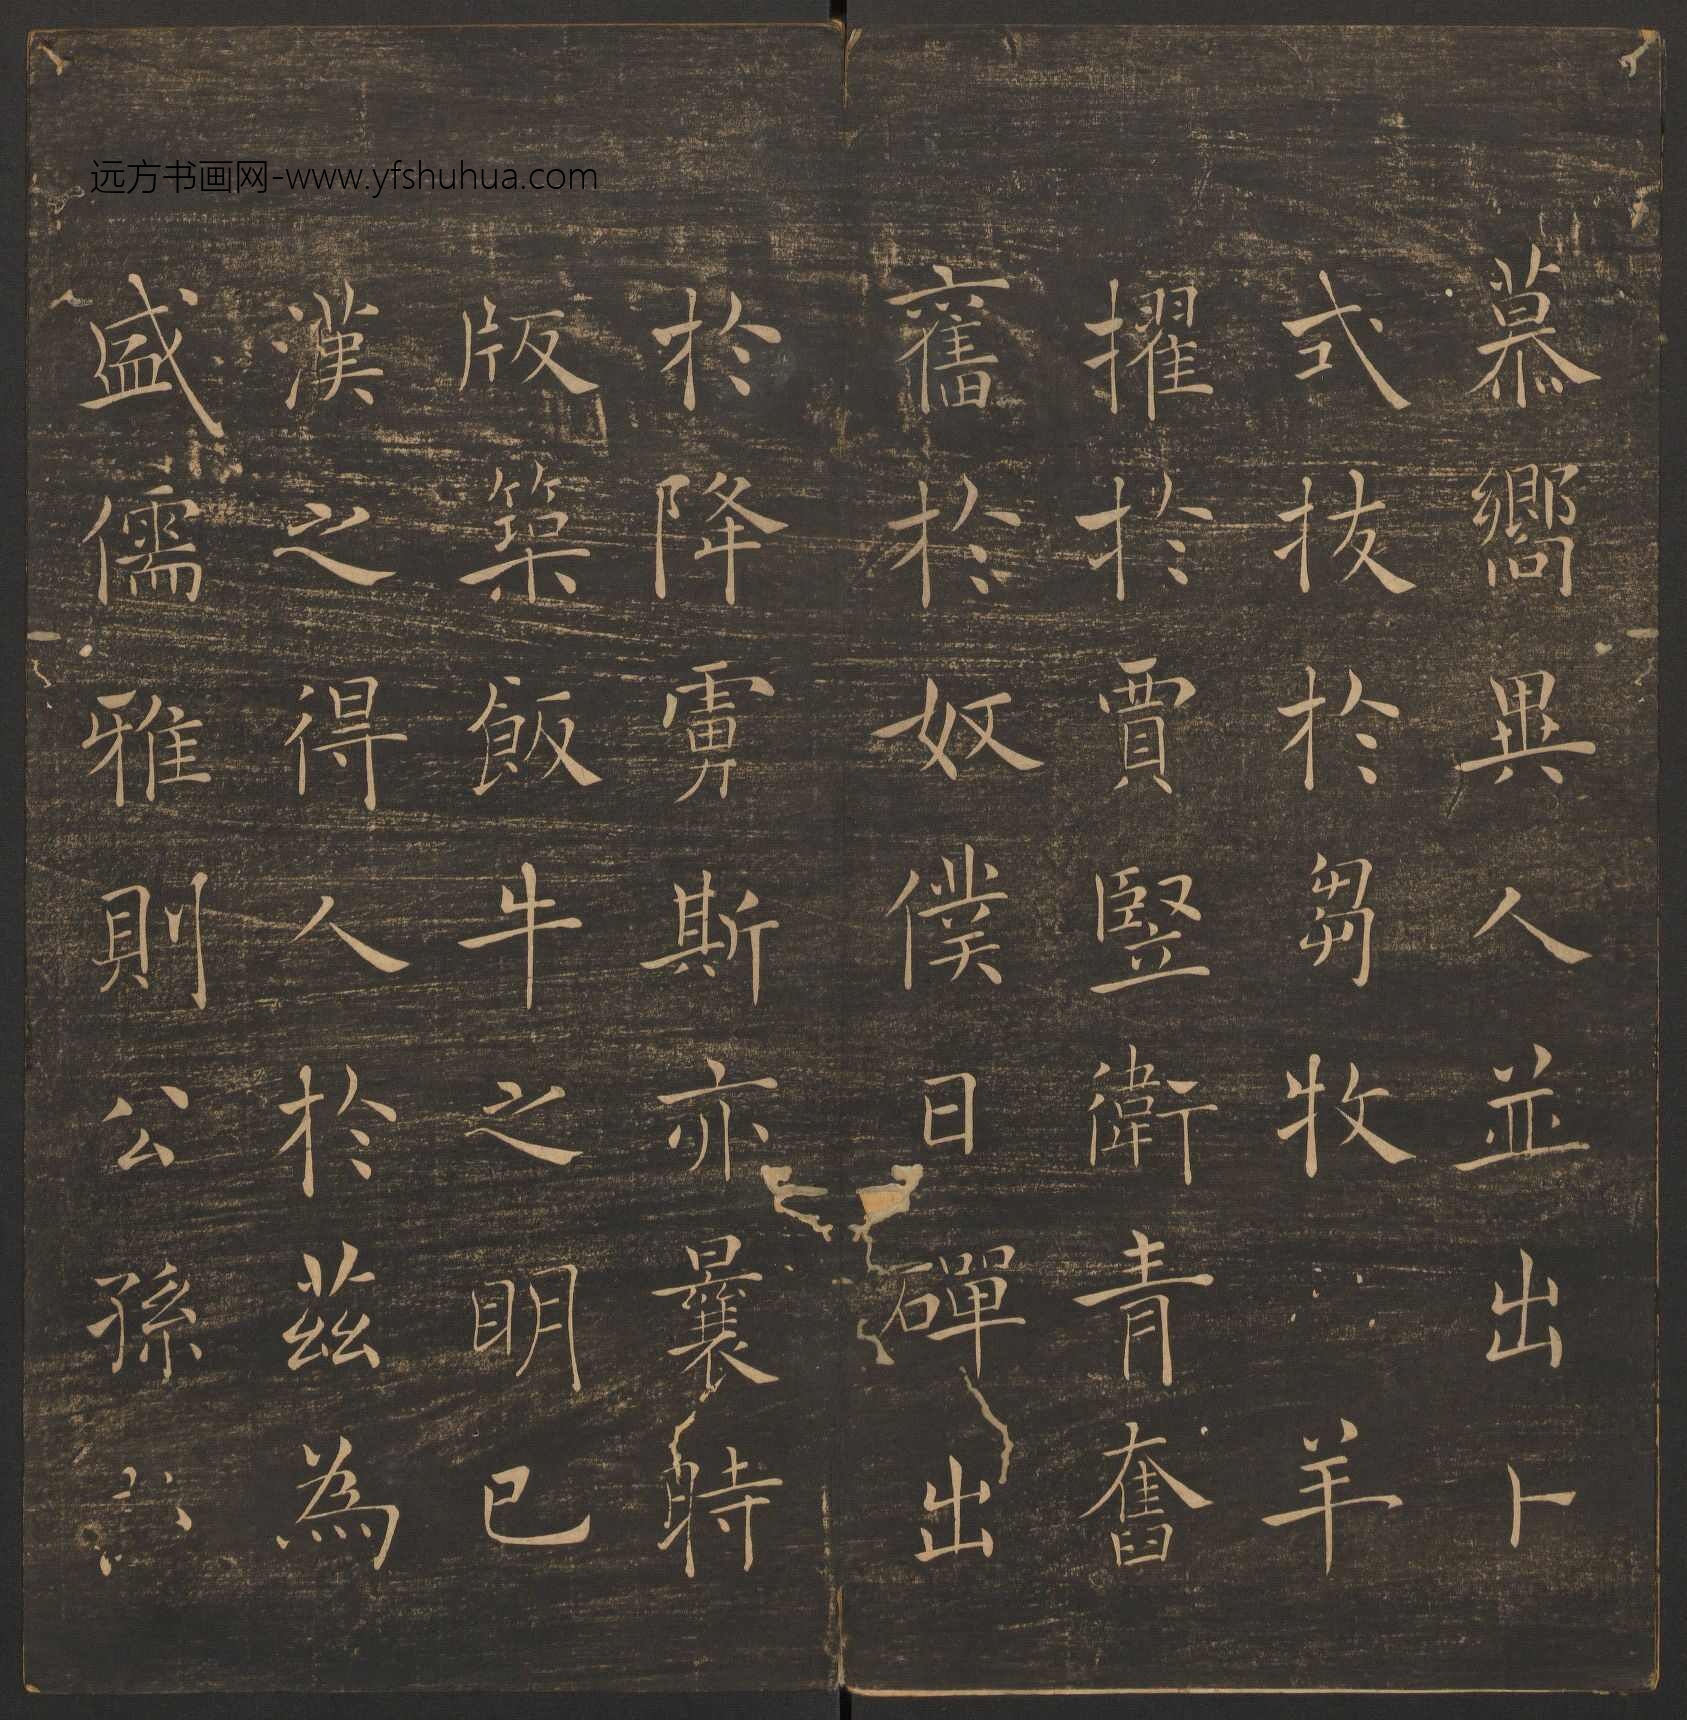 远方书画网-www.yfshuhua.com
慕嚮異人並出卜
式拔於芻牧羊
擢於賈豎衛青奮
舊於奴僕日磾出
於降虜斯亦曩時
版築飯牛之明已
漢之得人於茲為
盛儒雅則公孫